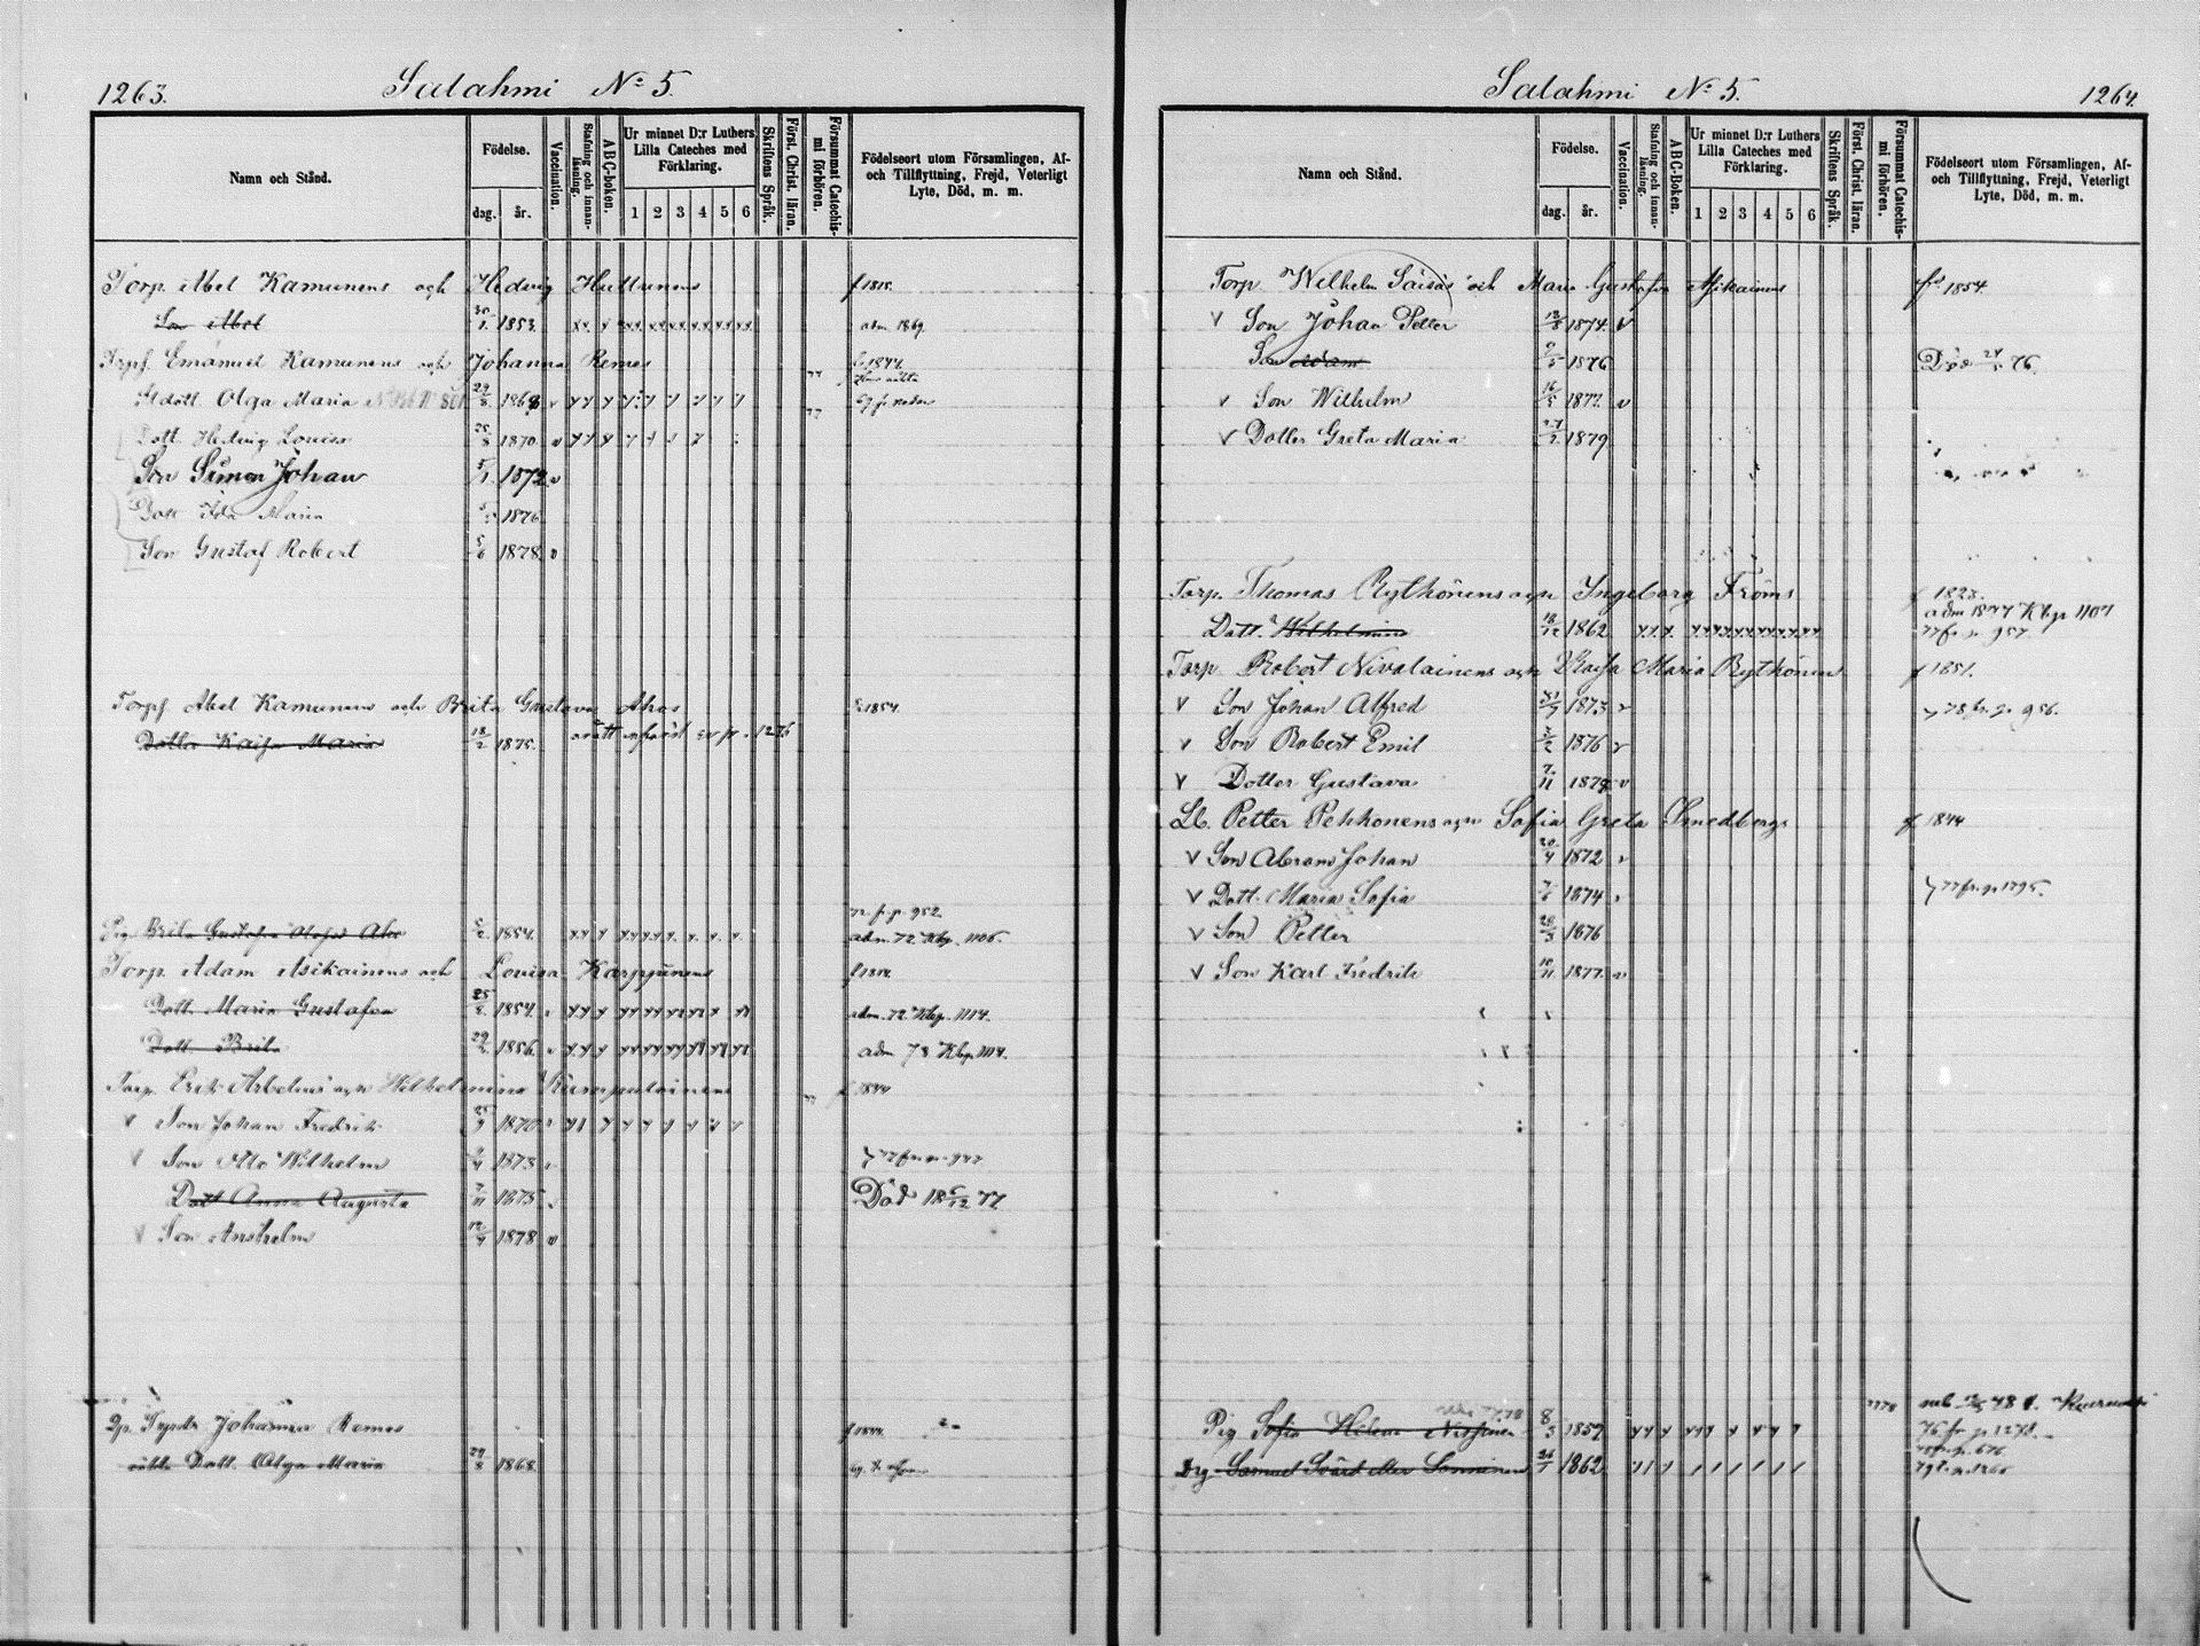 1263.
Salahmi No 5.
Namn och Stånd.
Födelse.
dag.
år.
Vaccination.
Stafning och innan-läsning.
ABC-boken.
Ur minnet D:r Luthers Lilla Cateches med Förklaring.
1 2 3 4 5 6
Skriftens Språk.
Först. Christ. läran.
Försummat Catechis-mi förhören.
Födelseort utom Församlingen, Af- och Tillflyttning, Frejd, Veterligt Lyte, Död, m. m.
Torp. Abel Kamunens och Hedvig Huttunens f 1815.
Son Abel 30/1 1853. adm 1869.
Torpf. Emanuel Kamunens och Johanna Remes f. 1844.
dott. Olga Maria 29/8 1868
Dott. Hedvig Lovisa 25/8 1870
Son Simon Johan 5/1 1872
Dott Ida Maria 1876
Son Gustaf Robert 5/6 1878
Torpf Abel Kamunens och Brita Gustava Ahos f. 1854.
Dotter Kaisa Maria 18/2 1875. p. 1276
72 f. p. 952.
Pig Brita Gustafva Ahos 1854. adm. 72 Kbp. 1106.
Torp. Adam Asikainens och Lovisa Karppinens f 1818.
Dott. Maria Gustafva 25 1854. adm. 72 Kbp. 1114.
Dott. Brita 29/2 1856. adm 73 Kbp. 1114.
Torp. Erik Arbelius och Wilhelmina Kumpulainens f 1844
v Son Johan Fredrik 25/9 1870
v Son Otto Wilhelm 1873
Dott Anna Augusta 7/11 1875 Död 18 6/12 77
v Son Anshelm 12/4 1878
Johanna Remes f 1844.
Dott. Olga Maria 29/8 1868.
Salahmi No 5.
1264.
Namn och Stånd.
Födelse.
dag.
år.
Vaccination.
Stafning och innan-läsning.
ABC-Boken.
Ur minnet D:r Luthers Lilla Cateches med Förklaring.
1 2 3 4 5 6
Skriftens Språk.
Först. Christ. läran.
Försummat Catechis-mi förhören.
Födelseort utom Församlingen, Af- och Tillflyttning, Frejd, Veterligt Lyte, Död, m. m.
Torp Wilhelm Säisäs och Maria Gustafva Asikainens 1854.
v Son Johan Petter 13/8 1874. v
Son Adam 9/5 1876 Död 24/5 76.
v Son Wilhelm 16/5 1877. v
v Dotter Greta Maria 27/2 1879
Torp. Thomas Rythönens och Ingeborg Fröms f 1823.
Dott. Wilhelmina 18/12 1862 adm 1877 Kbp 1107
77 fr p 957.
Torp Robert Nivalainens och Kaisa Maria Rythönen f 1851.
v Son Johan Alfred 1873 78 fr. p. 956.
v Son Robert Emil 3/2 1876
v Dotter Gustava 7/11 1879 v
Lb. Petter Pekkonens och Sofia Greta Smedbergs f 1844
v Son Abram Johan 20/4 1872
v Dott. Maria Sofia 1874 77 fr. p. 1795.
v Son Petter 1876
v Son Karl Fredrik 10/11 1877. v
Pig Sofia Helena Nissinen 8/3 1857 76 fr p 1278.
Drg Samuel Svärd eller Sonninen 1862